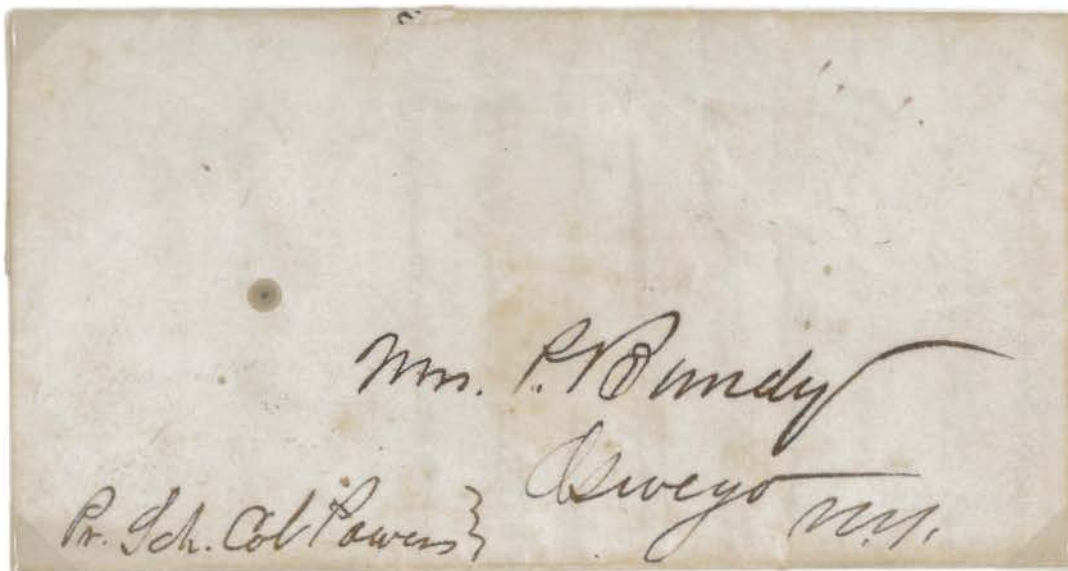 Mrs. P. Bundy
Oswego
N.Y.
Pr. Sch. Col Powers }